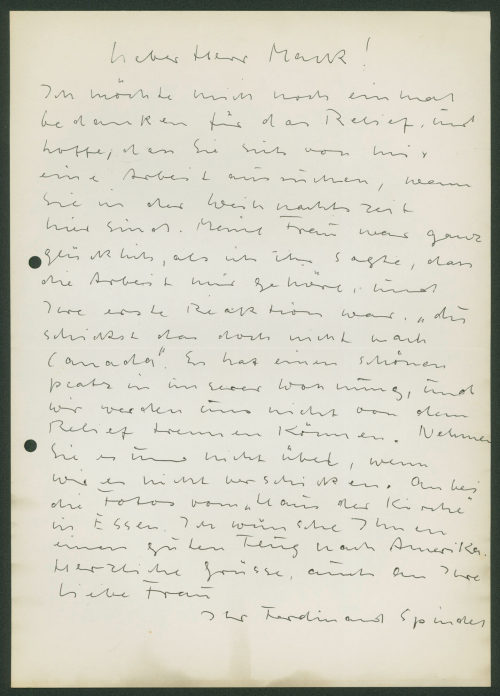 Lieber Herr Mack!
Ich möchte mich noch einmal
bedanken für das Relief, und
hoffe, dass Sie sich von mir
eine Arbeit aussuchen, wenn
Sie in der Weihnachtszeit
hier sind. Meine Frau war ganz
glücklich, als ich ihr sagte, dass
die Arbeit mir gehöre, und
Ihre erste Reaktion war. „du
schickst das doch nicht nach
Canada". Es hat einen schönen
platz in unserer Wohnung, und
wir werden uns nicht von dem
Relief trennen können. Nehmen
Sie es uns nicht übel, wenn
wir es nicht verschicken. Anbei
die Fotos vom „Haus der Kirche"
in Essen. Ich wünsche Ihnen
einen guten Flug nach Amerika.
Herzliche Grüsse, auch an Ihre
liebe Frau
Ihr Ferdinand Spindel